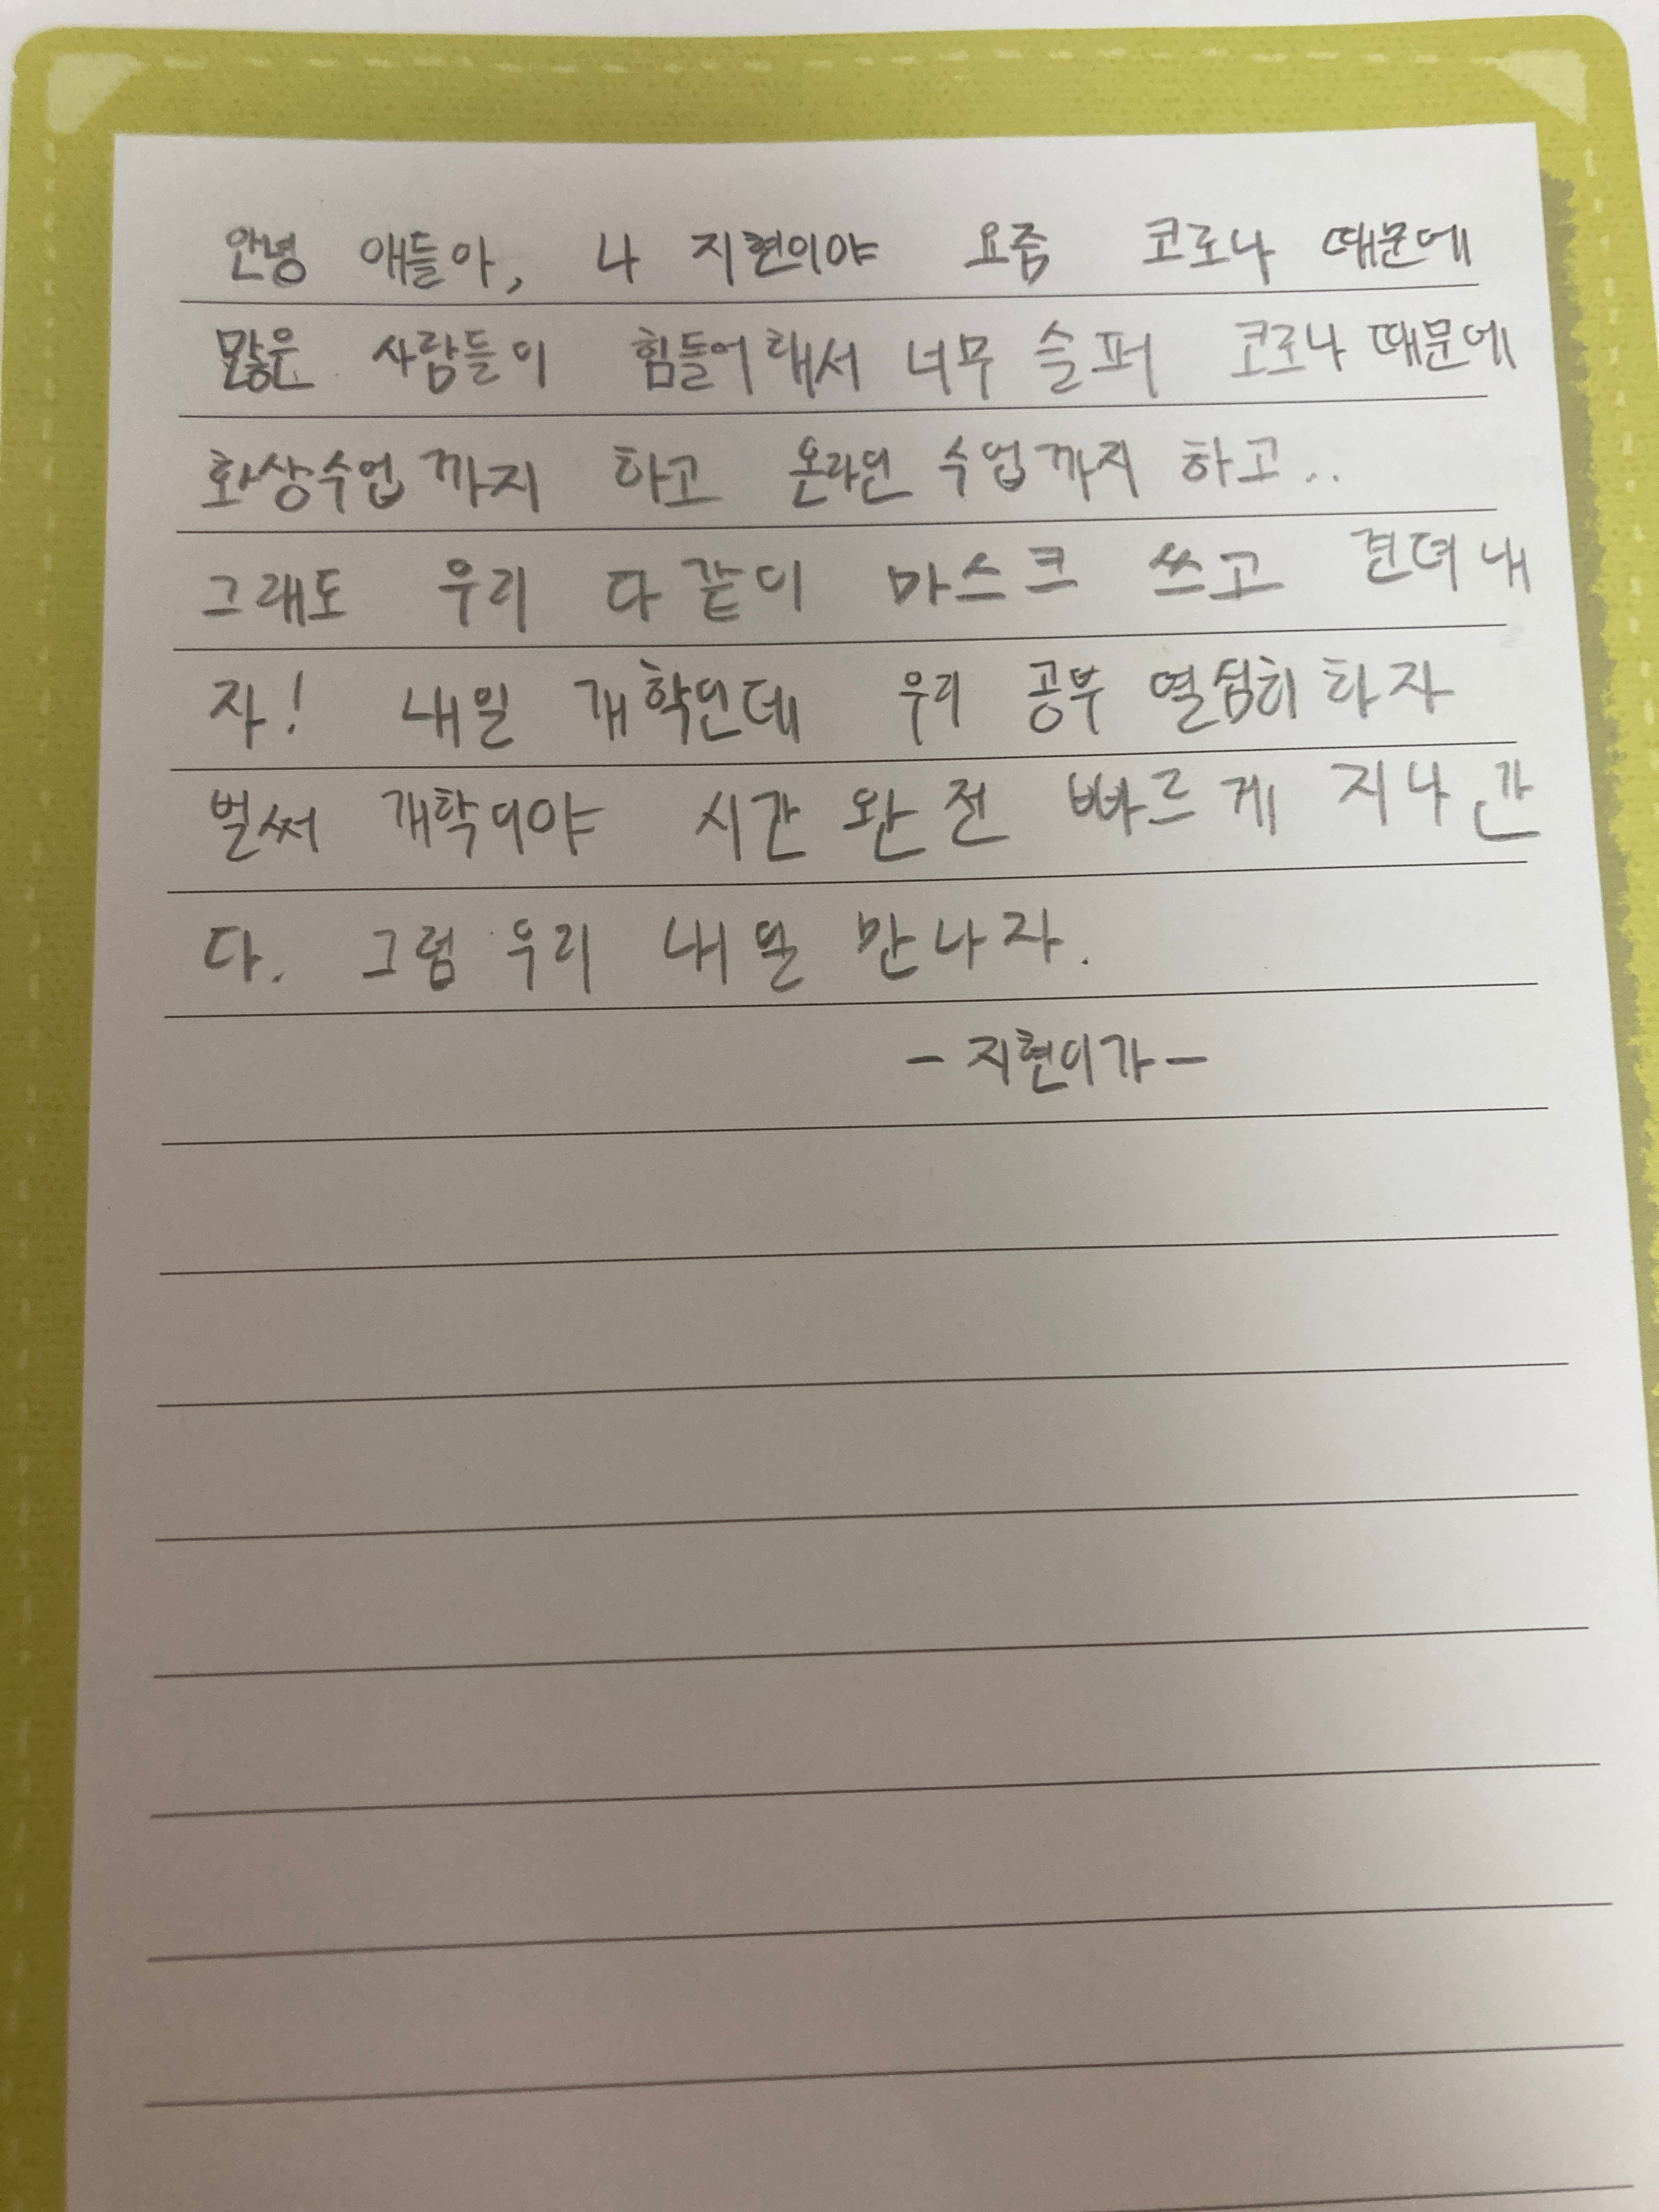 안녕 애들아, 나 지현이야 요즘 코로나 때문에
많은 사람들이 힘들어해서 너무 슬퍼 코로나 때문에
화상수업까지 하고 온라인 수업까지 하고..
그래도 우리 다같이 마스크 쓰고 견뎌내
자! 내일 개학인데 우리 공부 열심히 하자
벌써 개학이야 시간 완전 빠르게 지나간
다. 그럼 우리 내일 만나자.
- 지현이가 -